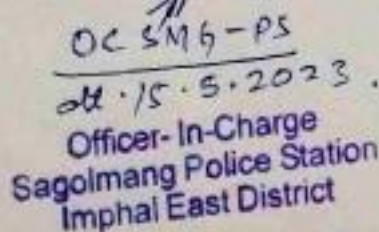 OC SMG-PS
dt. 15.5.2023.
Officer- In-Charge
Sagolmang Police Station
Imphal East District